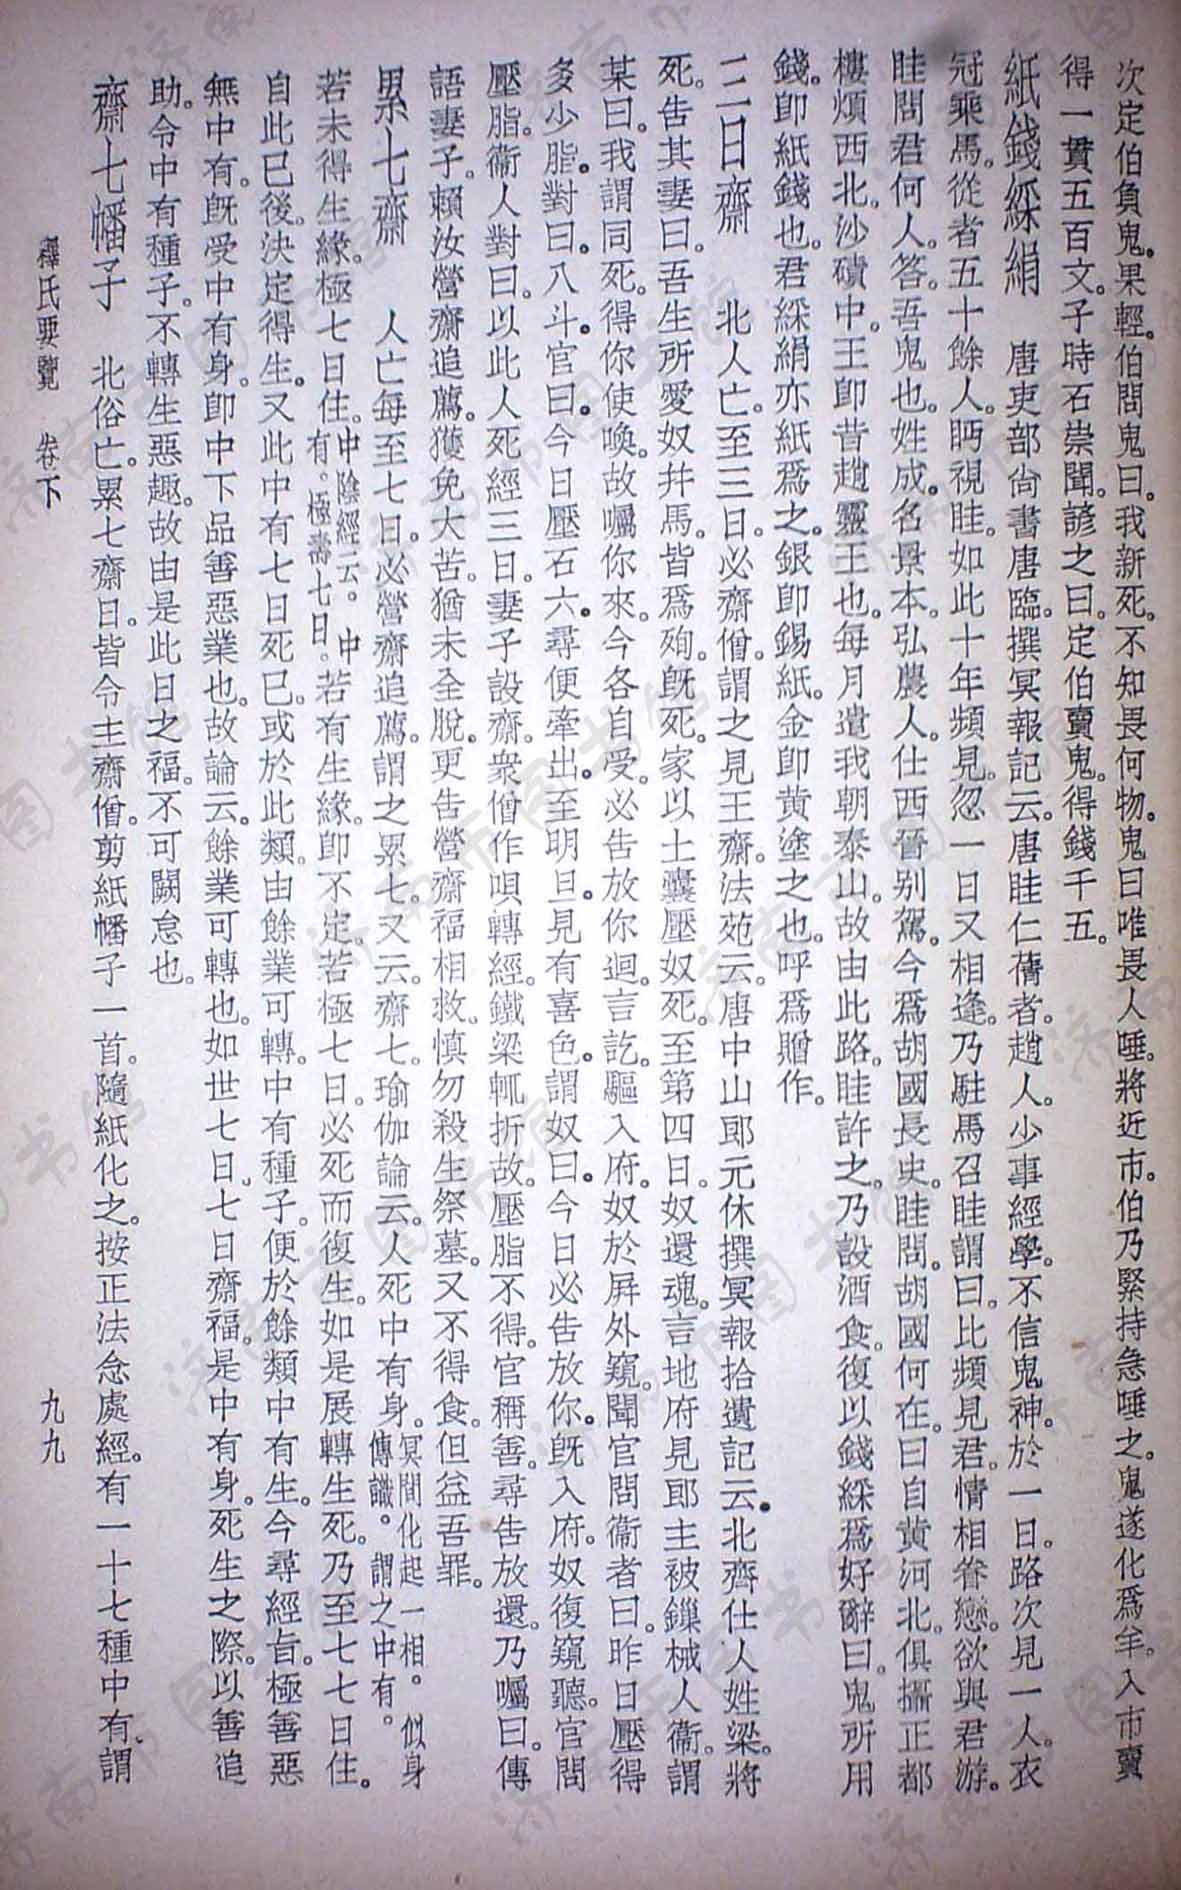 次定伯負鬼。果輕。伯問鬼曰。我新死。不知畏何物。鬼曰唯畏人唾。將近市。伯乃緊持急唾之。鬼遂化爲羊。入市賣
得一貫五百文。子時石崇聞。諺之曰。定伯賣鬼。得錢千五。
紙錢綵絹　唐吏部尙書唐臨。撰冥報記云。唐眭仁蒨者。趙人。少事經學。不信鬼神。於一日。路次見一人。衣
冠乘馬。從者五十餘人。眄視眭。如此十年頻見。忽一日又相逢。乃駐馬召眭謂曰。比頻見君。情相眷戀。欲與君游。
眭問君何人。答。吾鬼也。姓成。名景本。弘農人。仕西晉别駕。今爲胡國長史。眭問。胡國何在。曰自黄河北。俱攝正都
樓煩西北。沙磧中。王卽昔趙靈王也。每月遣我朝泰山。故由此路。眭許之。乃設酒食。復以錢綵爲好辭曰。鬼所用
錢。卽紙錢也。君綵絹亦紙爲之。銀卽錫紙。金卽黄塗之也。呼爲贈作。
三日齋　北人亡。至三日。必齋僧。謂之見王齋。法苑云。唐中山郎元休撰冥報拾遺記云。北齊仕人姓梁。將
死。告其妻曰。吾生所愛奴幷馬。皆爲殉。旣死。家以土囊壓奴死。至第四日。奴還魂。言地府見郎主被鏁械人衞。謂
某曰。我謂同死。得你使喚。故囑你來。今各自受。必告放你迴。言訖。驅入府。奴於屛外窺。聞官問衞者曰。昨日壓得
多少脂。對曰。八斗。官曰。今日壓石六。尋便牽出。至明旦。見有喜色。謂奴曰。今日必告放你。旣入府。奴復窺聽。官問
壓脂。衞人對曰。以此人死經三日。妻子設齋。衆僧作唄轉經。鐵梁輒折故。壓脂不得。官稱善。尋告放還。乃囑曰。傳
語妻子。賴汝營齋追薦。獲免大苦。猶未全脫。更告營齋福相救。愼勿殺生祭墓。又不得食。但益吾罪。
累七齋　人亡每至七日。必營齋追薦。謂之累七。又云。齋七。瑜伽論云。人死中有身。冥間化起一相。似身傳識。謂之中有。
若未得生緣。極七日住。中陰經云。中有。極壽七日。若有生緣。卽不定。若極七日。必死而復生。如是展轉生死。乃至七七日住。
自此已後。決定得生。又此中有七日死已。或於此類。由餘業可轉。中有種子。便於餘類中有生。今尋經旨。極善惡
無中有。旣受中有身。卽中下品善惡業也。故論云。餘業可轉也。如世七日。七日齋福。是中有身。死生之際。以善追
助。令中有種子。不轉生惡趣。故由是此日之福。不可闕怠也。
齋七幡子　北俗亡。累七齋日。皆令主齋僧。剪紙幡子一首。隨紙化之。按正法念處經。有一十七種中有。謂
釋氏要覽　卷下
九九